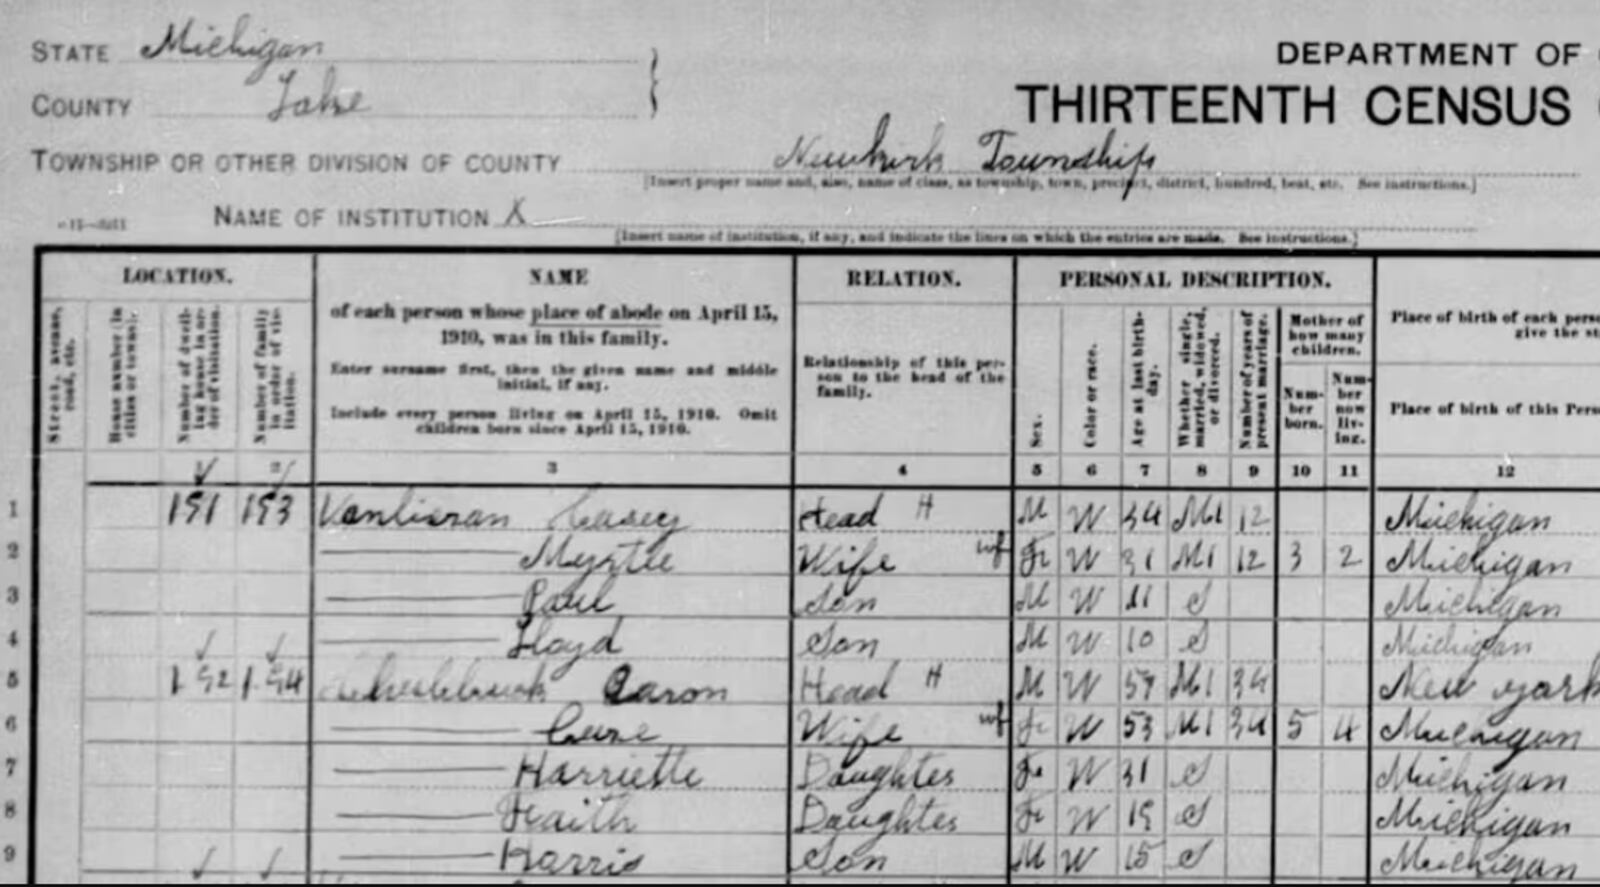 STATE Michigan
COUNTY Lake
TOWNSHIP OR OTHER DIVISION OF COUNTY Newkirk Township
[Insert proper name and, also, name of class, as township, town, precinct, district, hundred, beat, etc. See instructions.]
NAME OF INSTITUTION X
[Insert name of institution, if any, and indicate the lines on which the entries are made. See instructions.]
DEPARTMENT OF
THIRTEENTH CENSUS
LOCATION.
Street, avenue, road, etc.
House number (in cities or towns).
Number of dwelling house in order of visitation.
Number of family in order of visitation.
NAME
of each person whose place of abode on April 15,
1910, was in this family.
Enter surname first, then the given name and middle
initial, if any.
Include every person living on April 15, 1910. Omit
children born since April 15, 1910.
RELATION.
Relationship of this per-
son to the head of the
family.
PERSONAL DESCRIPTION.
Sex.
Color or race.
Age at last birth-
day.
Whether single,
married, widowed,
or divorced.
Number of years of
present marriage.
Mother of
how many
children.
Num-
ber
born.
Num-
ber
now
liv-
ing.
Place of birth of each
give the
Place of birth of this
3 4 5 6 7 8 9 10 11 12
1 191 193 Head H M W 34 M1 12 Michigan
2 Myrtle Wife wf Fe W 31 M1 12 3 2 Michigan
3 Paul Son M W 11 S Michigan
4 Lloyd Son M W 10 S Michigan
5 192 194 Aaron Head H M W M1 34 New York
6 Wife wf Fe W 53 M1 34 5 4 Michigan
7 Harriette Daughter Fe W 31 S Michigan
8 Faith Daughter Fe W 19 S Michigan
9 Harris Son M W 15 S Michigan